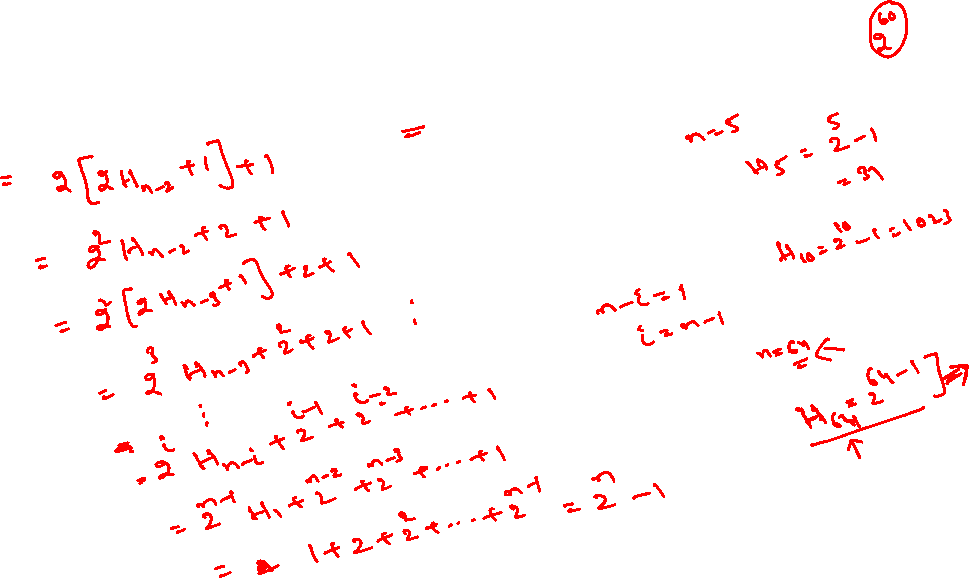 2^{60}
=
= 2[2H_{n-2}+1]+1
= 2^2 H_{n-2}+2+1
= 2^2[2H_{n-3}+1]+2+1
= 2^3 H_{n-3}+2^2+2+1
⋮ ⋮
= 2^i H_{n-i}+2^{i-1}+2^{i-2}+...+1
= 2^{n-1} H_1+2^{n-2}+2^{n-3}+...+1
= 1+2+2^2+...+2^{n-1} = 2^n-1
n=5
H_5 = 2^5-1
= 31
H_{10}=2^{10}-1=1023
n-i=1
i=n-1
n=64 ←
H_{64}=2^{64}-1] →
↑